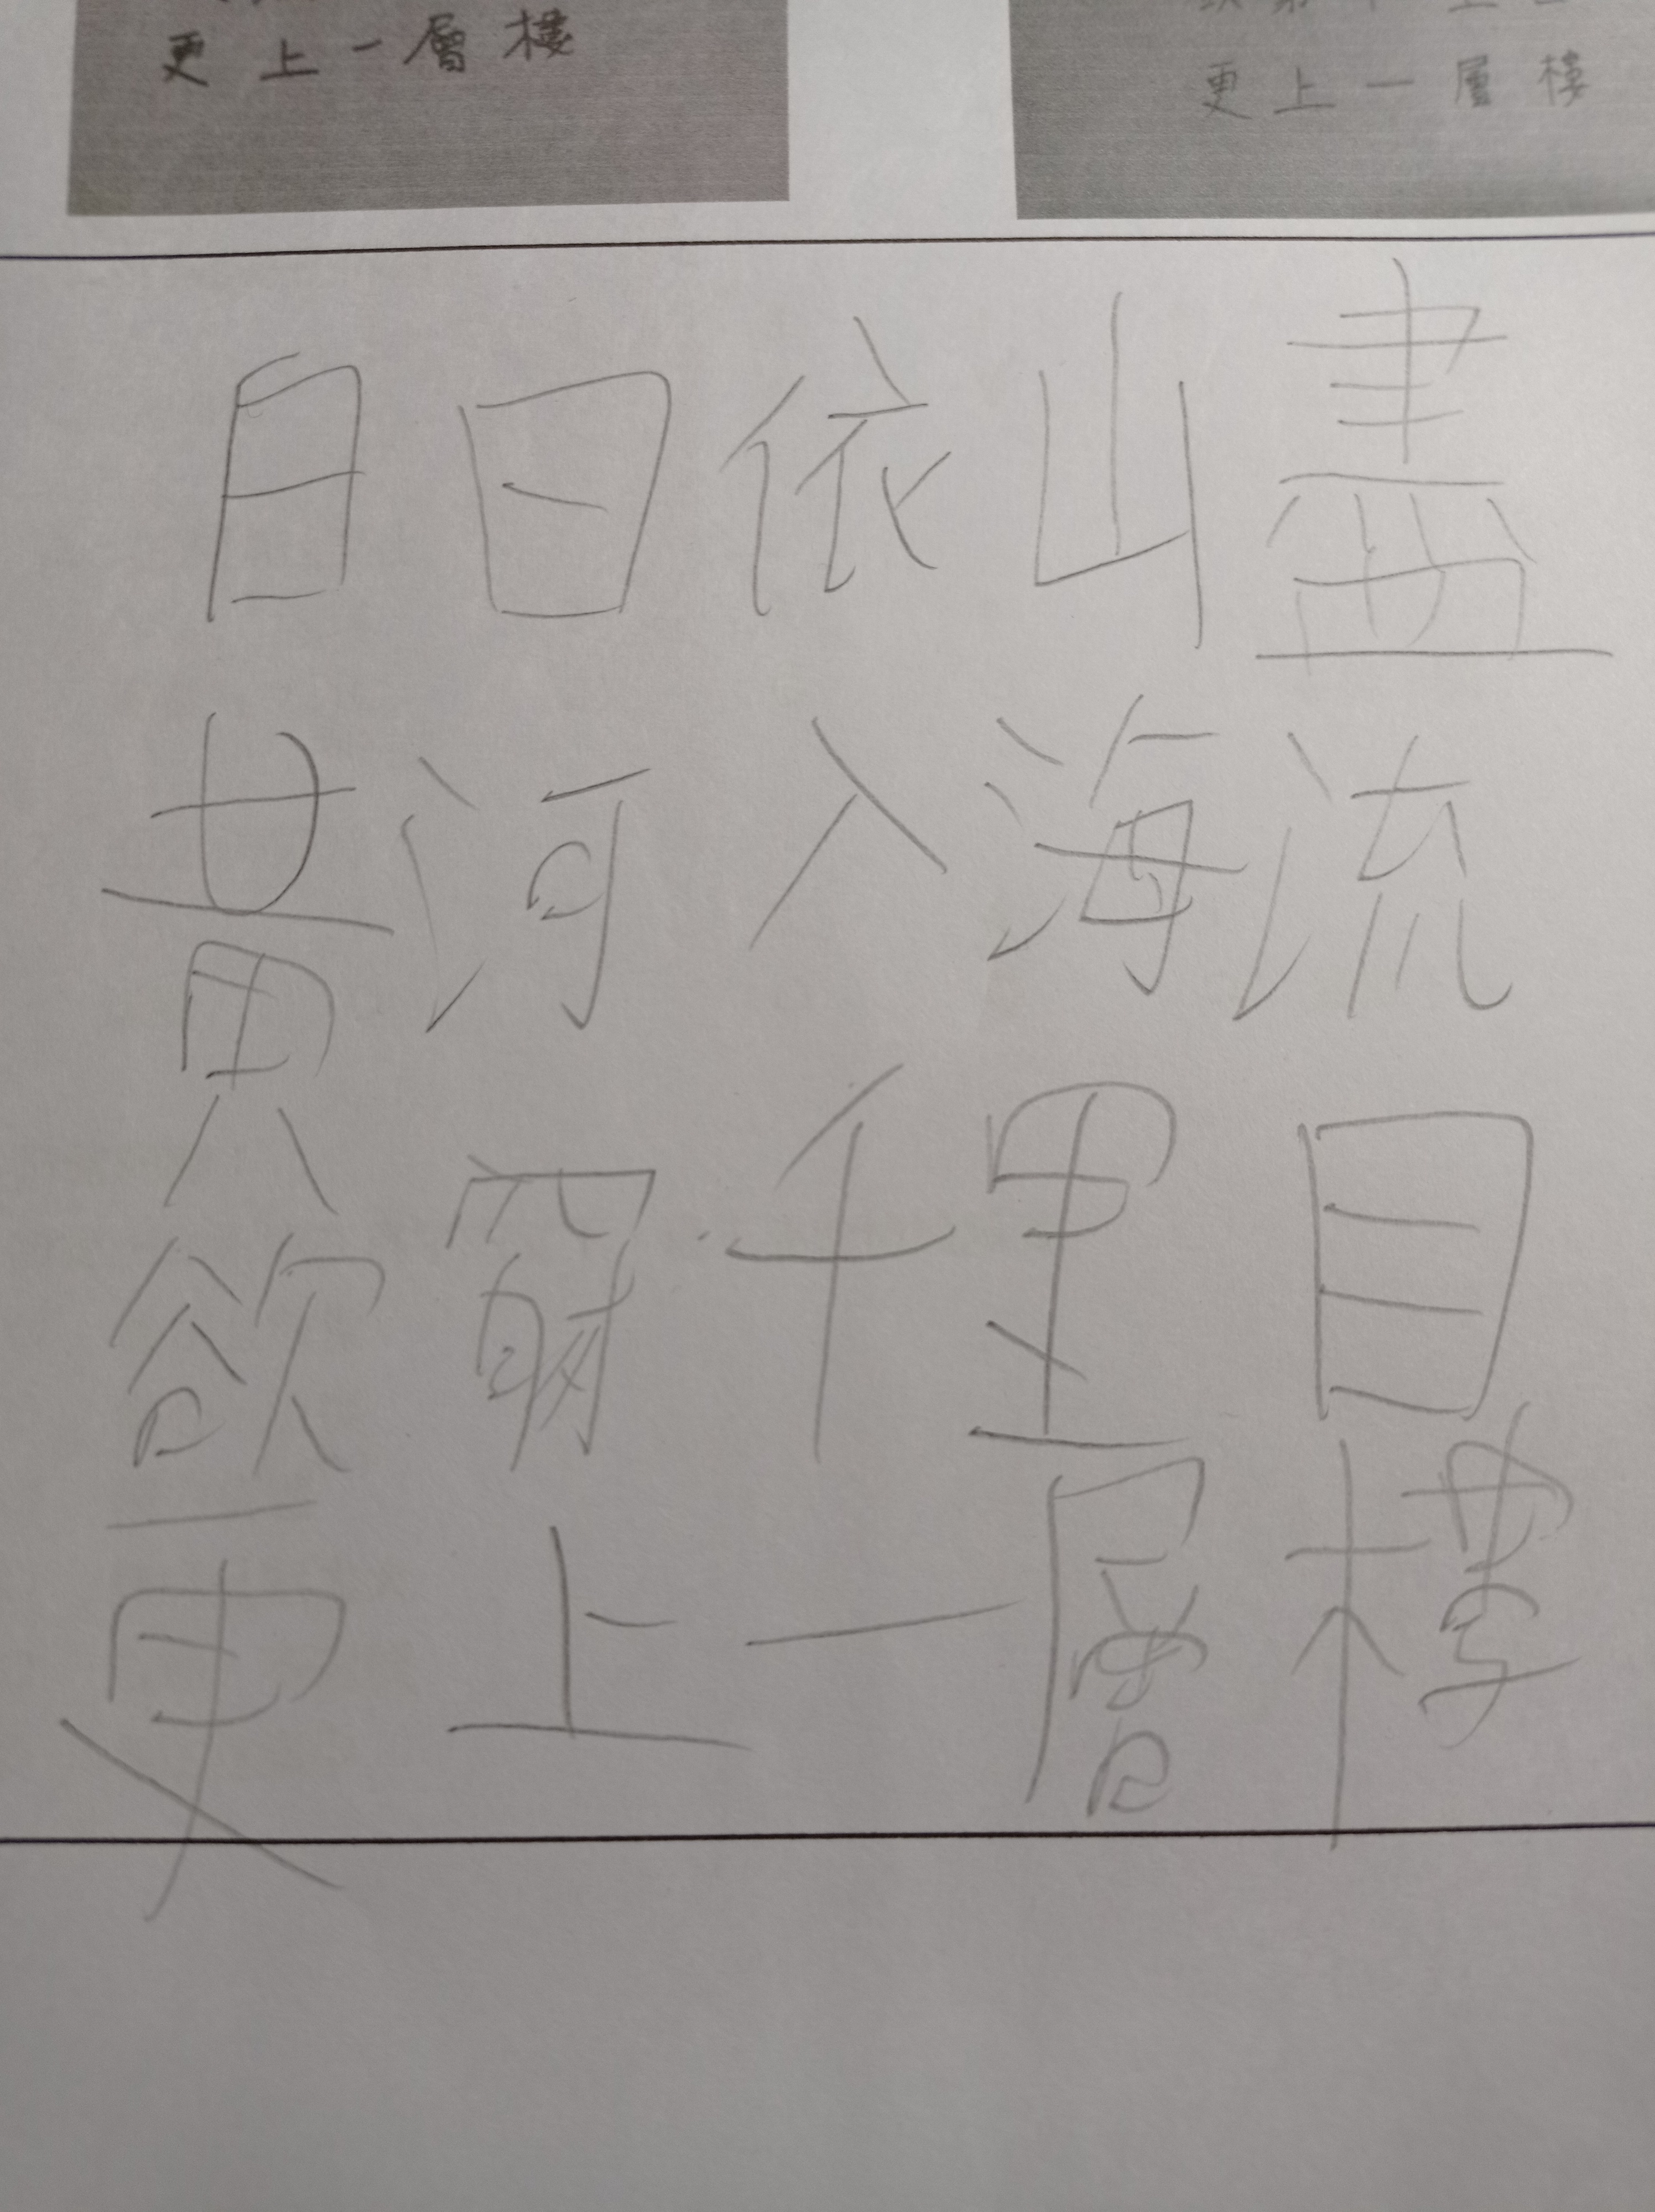 更上一層樓
更上一層樓
白日依山盡
黃河入海流
欲窮千里目
更上一層樓